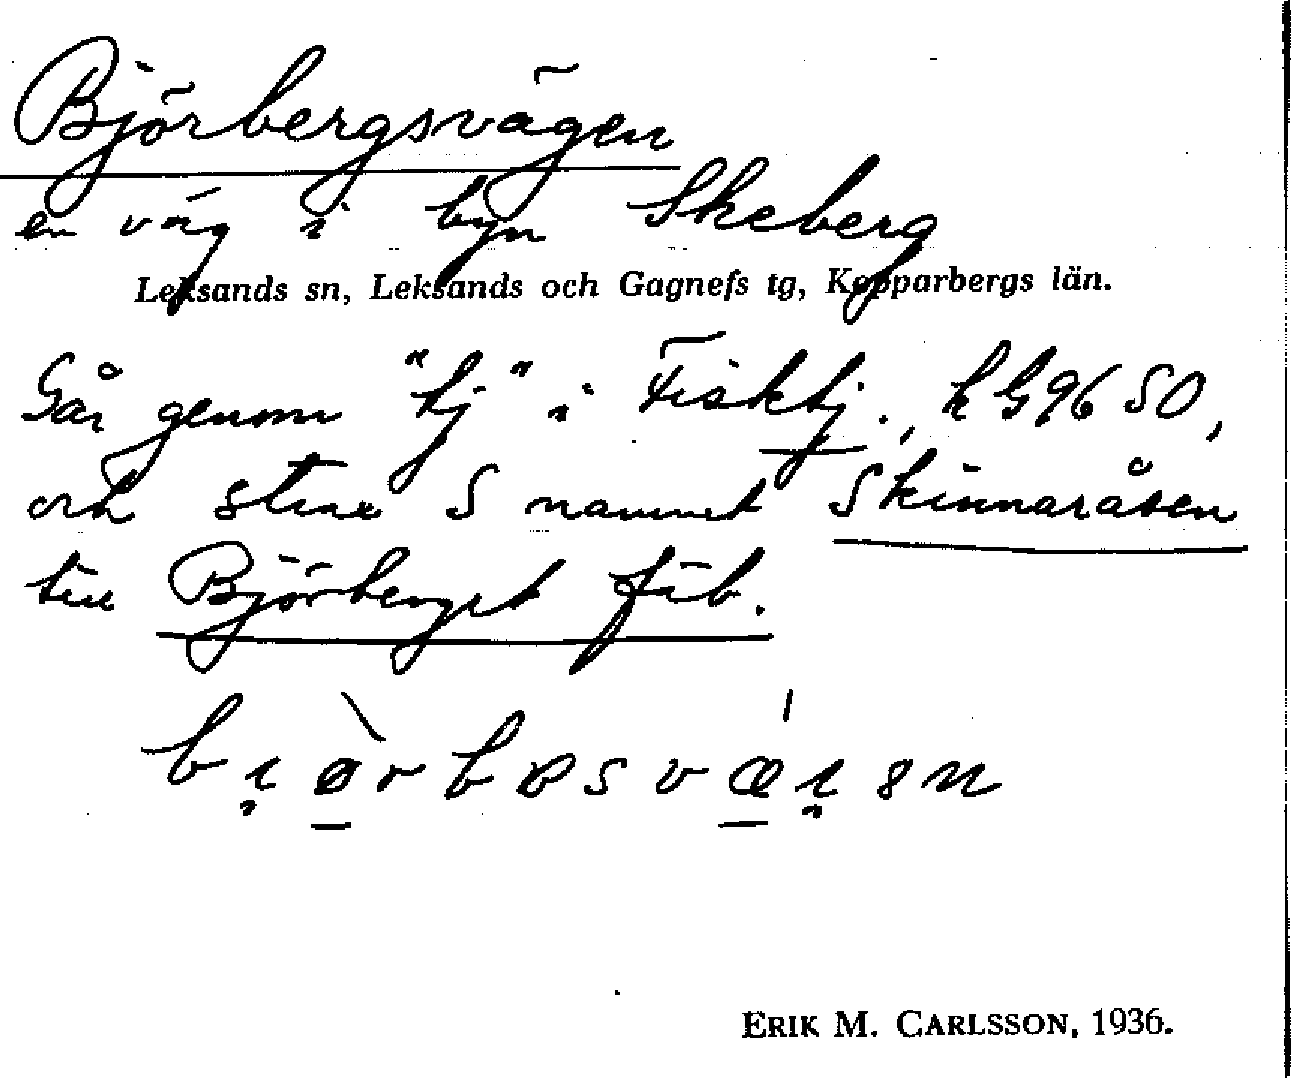 Björbergsvägen
en väg i byn Skeberg
Leksands sn, Leksands och Gagnefs tg, Kopparbergs län.
Går genom "tj" i Fisktj., k G96 SO,
och strax S namnet Skinnaråsen
till Björberget fäb.
ERIK M. CARLSSON, 1936.